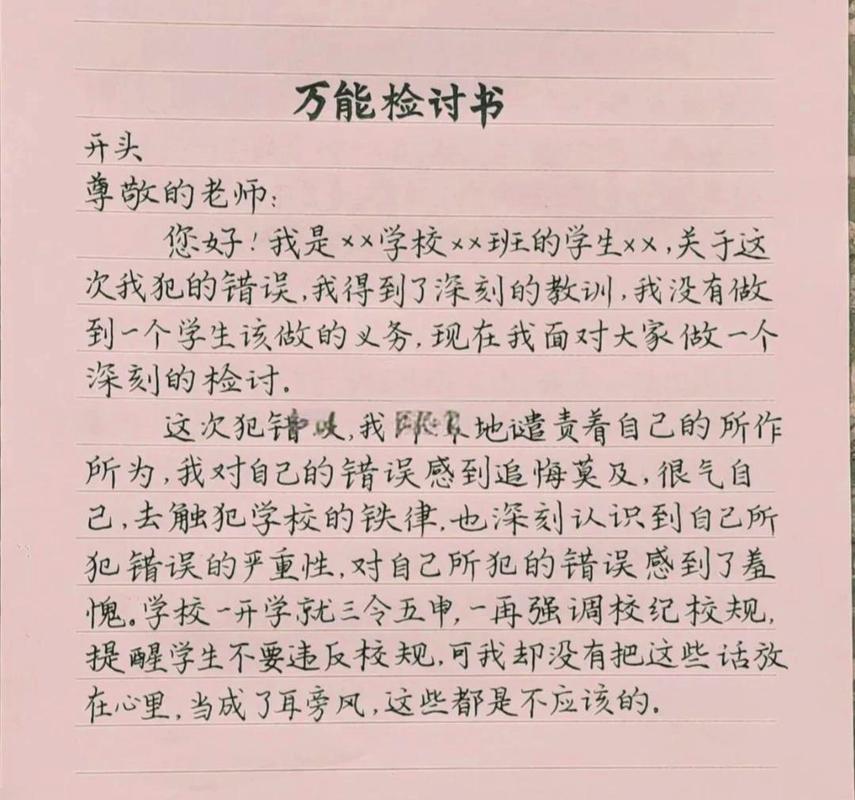 万能检讨书
开头
尊敬的老师:
您好!我是××学校××班的学生××,关于这
次我犯的错误,我得到了深刻的教训,我没有做
到一个学生该做的义务,现在我面对大家做一个
深刻的检讨.
这次犯错,我地谴责着自己的所作
所为,我对自己的错误感到追悔莫及,很气自
己,去触犯学校的铁律,也深刻认识到自己所
犯错误的严重性,对自己所犯的错误感到了羞
愧。学校一开学就三令五申,一再强调校纪校规,
提醒学生不要违反校规,可我却没有把这些话放
在心里,当成了耳旁风,这些都是不应该的.